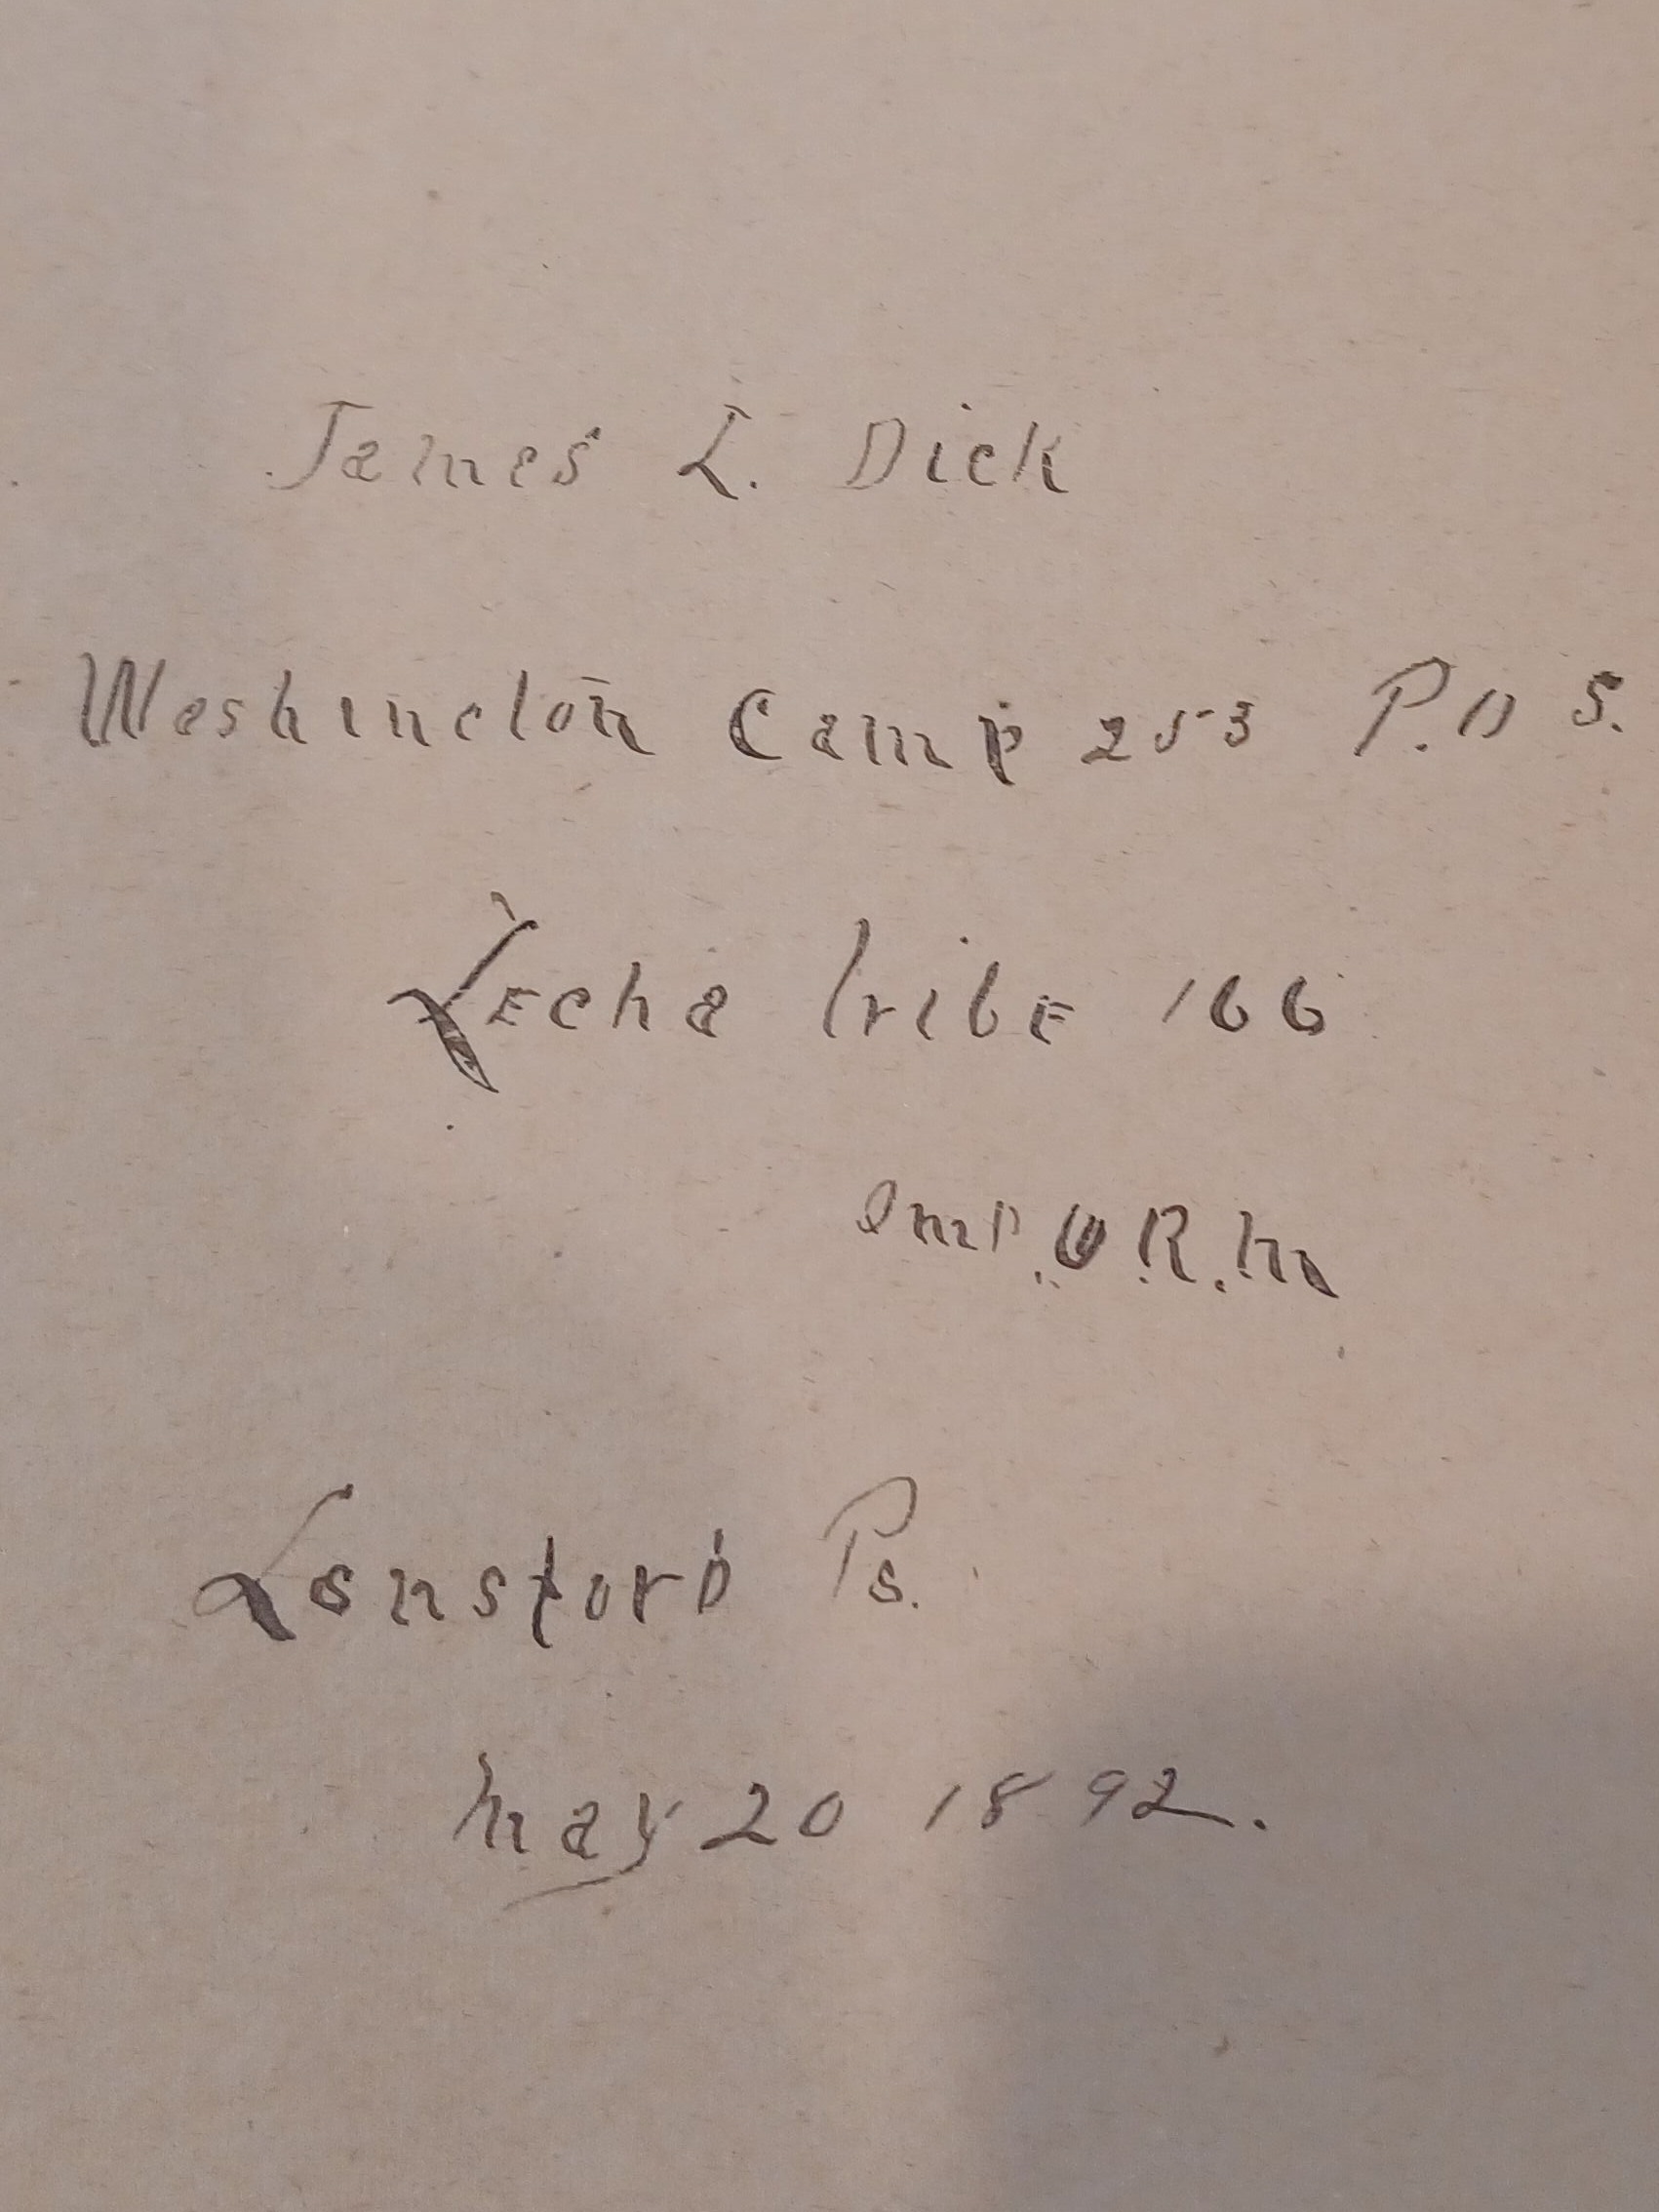 James L. Dick
Washincton Camp 253 P.O S.
Lecha Tribe 166
Imp. O R. M
Lansford Pa.
May 20 1892.